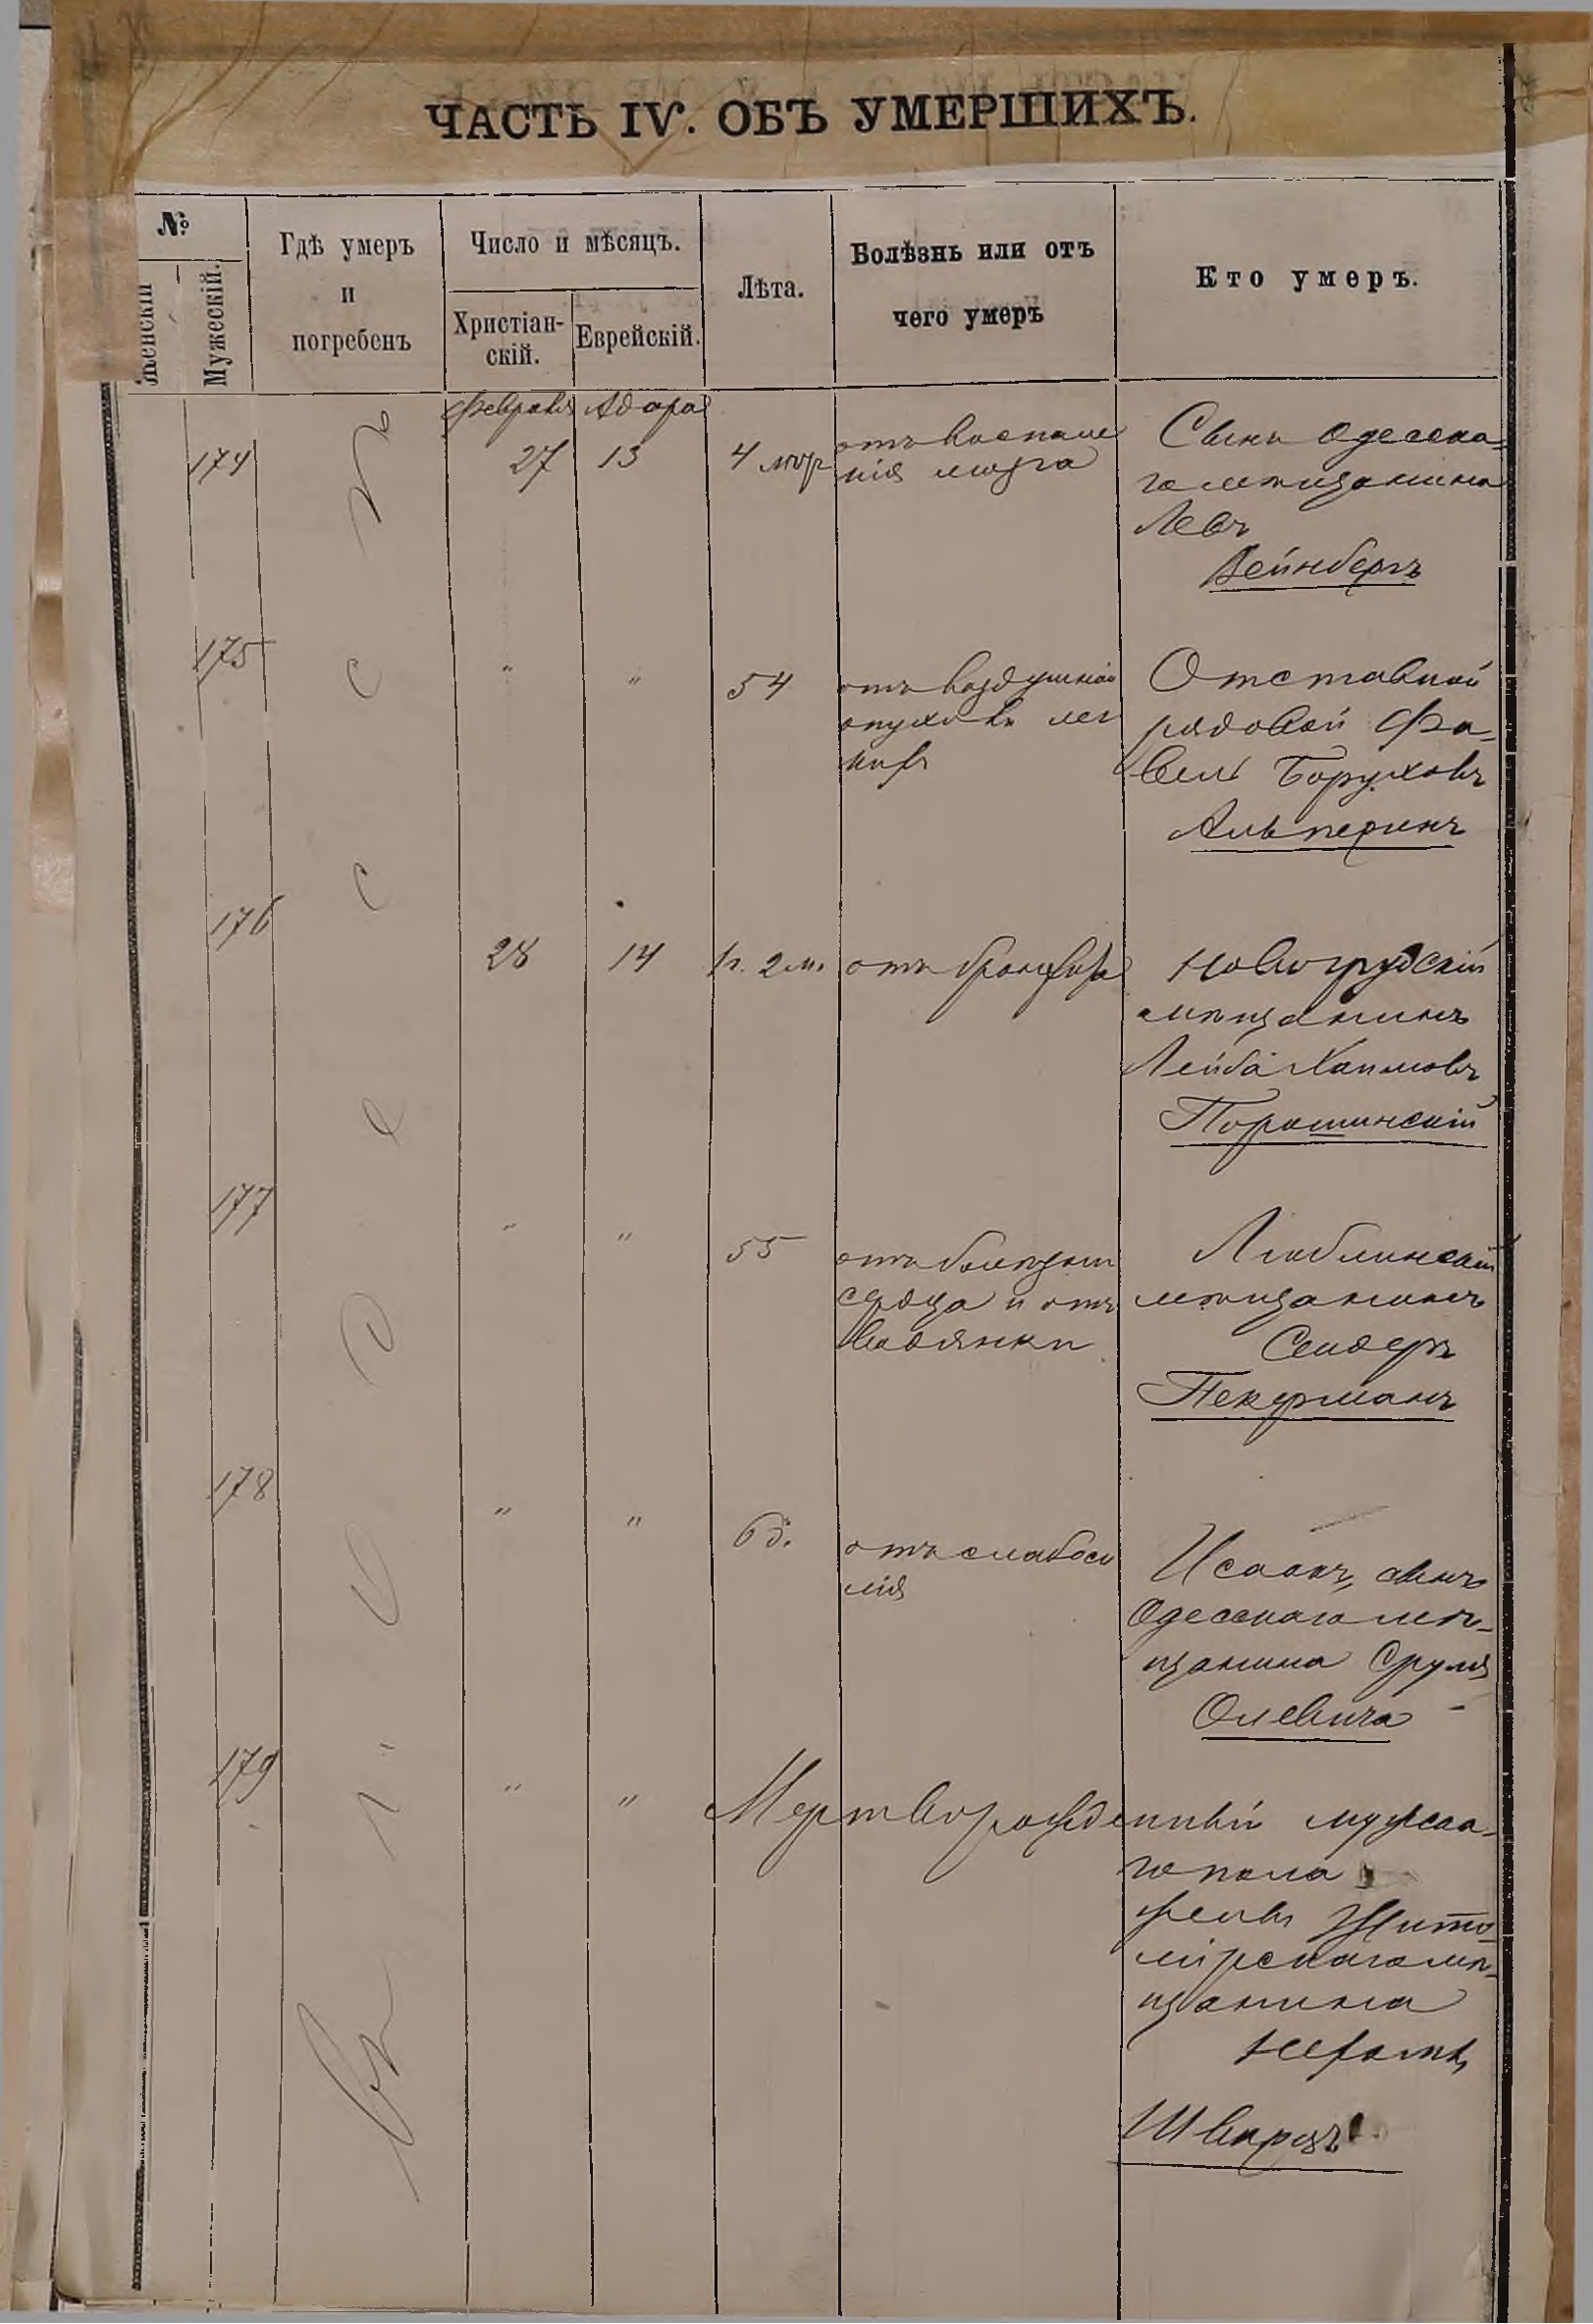 ЧАСТЬ IV. ОБЪ УМЕРШИХЪ.
№
Женскій
Мужескій.
Гдѣ умеръ
и
погребенъ
Число и мѣсяцъ.
Христіан-
скій.
Еврейскій.
Лѣта.
Болѣзнь или отъ
чего умеръ
Кто умеръ.
Въ г. Одессѣ
Февраля Адара
174
27 13
4 мѣс
отъ воспале
нія мозга
Сынъ Одесска-
го мѣщанина
Левъ
Вейнбергъ
175
" "
54
отъ воздушной
опухоли лег
кихъ
Отставной
рядовой Фа-
вель Боруховъ
Альперинъ
176
28 14
1г. 2 м.
отъ бронхита
Новогрудскій
мѣщанинъ
Лейба Хаимовъ
Порошинскій
177
" "
55
отъ болѣзни
сердца и отъ
водянки
Люблинскій
мѣщанинъ
Сендеръ
Пекерманъ
178
" "
6 д.
отъ слабоси
лія
Исаакъ, сынъ
Одесскаго мѣ-
щанина Сруля
Олевича
179
" "
Мертворожденный мужска-
го пола
жены Жито-
мірскаго мѣ-
щанина
Шварцъ